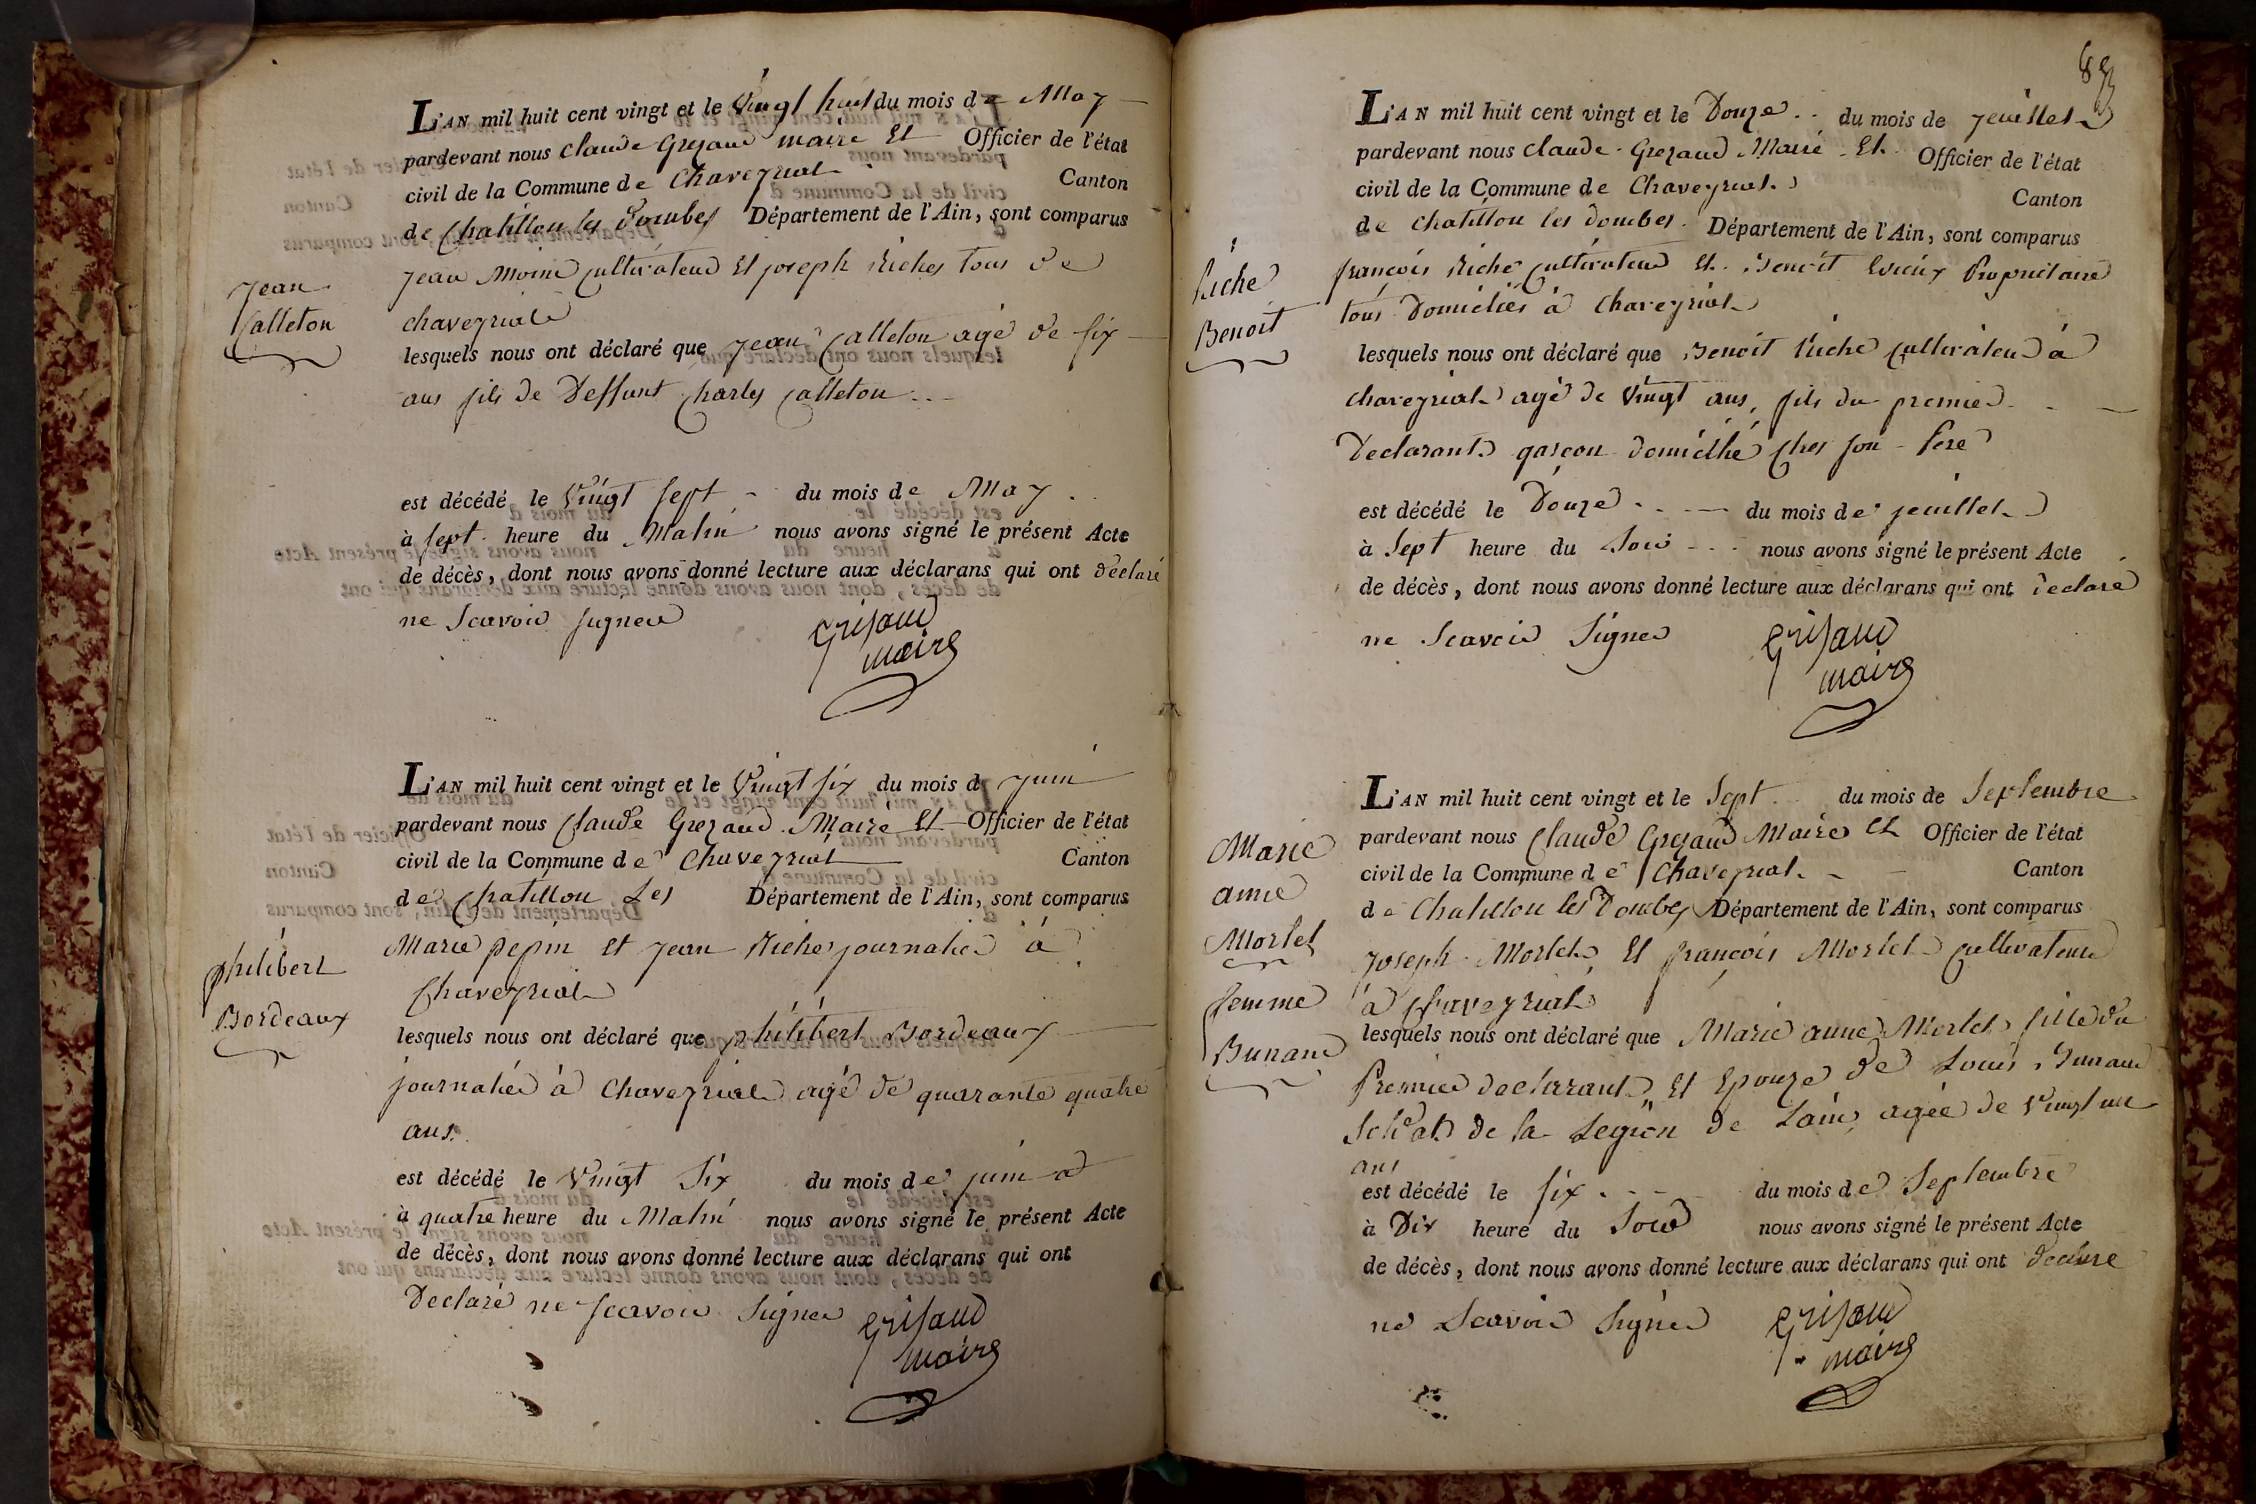 L'AN mil huit cent vingt et le Vingt huit du mois de May
pardevant nous Claude Grezaud maire Et Officier de l'état
civil de la Commune de Chaveyriat Canton
de Chatillon les Dombes Département de l'Ain, sont comparus
Jean Moine cultivateur Et joseph Riches tous de
chaveyriat
Jean
Calleton
lesquels nous ont déclaré que Jean Calleton agé de six
ans fils de Deffunt Charles Calleton
est décédé le Vingt sept du mois de May
à sept heure du Matin nous avons signé le présent Acte
de décès, dont nous avons donné lecture aux déclarans qui ont déclaré
ne Scavoir signer
Grisaud
maire
L'AN mil huit cent vingt et le Vingt six du mois d Juin
pardevant nous Claude Grezaud Maire Et Officier de l'état
civil de la Commune de Chaveyriat Canton
de Chatillon Les Département de l'Ain, sont comparus
Marie pepin et jean Riche journalier à
Chaveyriat
philibert
Bordeaux
lesquels nous ont déclaré que philibert Bordeaux
journalier à Chaveyriat agé de quarante quatre
ans.
est décédé le Vingt Six du mois de juin
à quatre heure du Matin nous avons signé le présent Acte
de décès, dont nous avons donné lecture aux déclarans qui ont
Declaré ne scavoir Signer
Grisaud
maire
L'AN mil huit cent vingt et le Douze du mois de jeuillet
pardevant nous Claude Grezaud Maire Et Officier de l'état
civil de la Commune de Chaveyriat Canton
de Chatillon les Dombes Département de l'Ain, sont comparus
françois Riche cultivateur Et Benoit Proprietaire
tous Domiciliés à Chaveyriat
Riche
Benoit
lesquels nous ont déclaré que Benoit Riche cultivateur à
Chaveyriat agé de Vingt ans, fils du premier
Declarant garçon domicilié Ches son Pere
est décédé le Douze du mois de jeuillet
à Sept heure du Soir nous avons signé le présent Acte
de décès, dont nous avons donné lecture aux déclarans qui ont declaré
ne Scavoir Signer
Grisaud
maire
L'AN mil huit cent vingt et le Sept du mois de Septembre
pardevant nous Claude Grezaud Maire Et Officier de l'état
civil de la Commune de Chaveyriat Canton
de Chatillon les Dombes Département de l'Ain, sont comparus
Joseph Morlet Et françois Morlet cultivateur
à Chaveyriat
Marie
anne
Morlet
femme
Bunand
lesquels nous ont déclaré que Marie anne Morlet fille du
Premier declarant Et Epouze de Louis Bunand
Soldat de la Legion de Lain, agée de Vingt un
ans
est décédé le six du mois de Septembre
à Dix heure du Soir nous avons signé le présent Acte
de décès, dont nous avons donné lecture aux déclarans qui ont declare
ne Scavoir Signer
Grisaud
maire